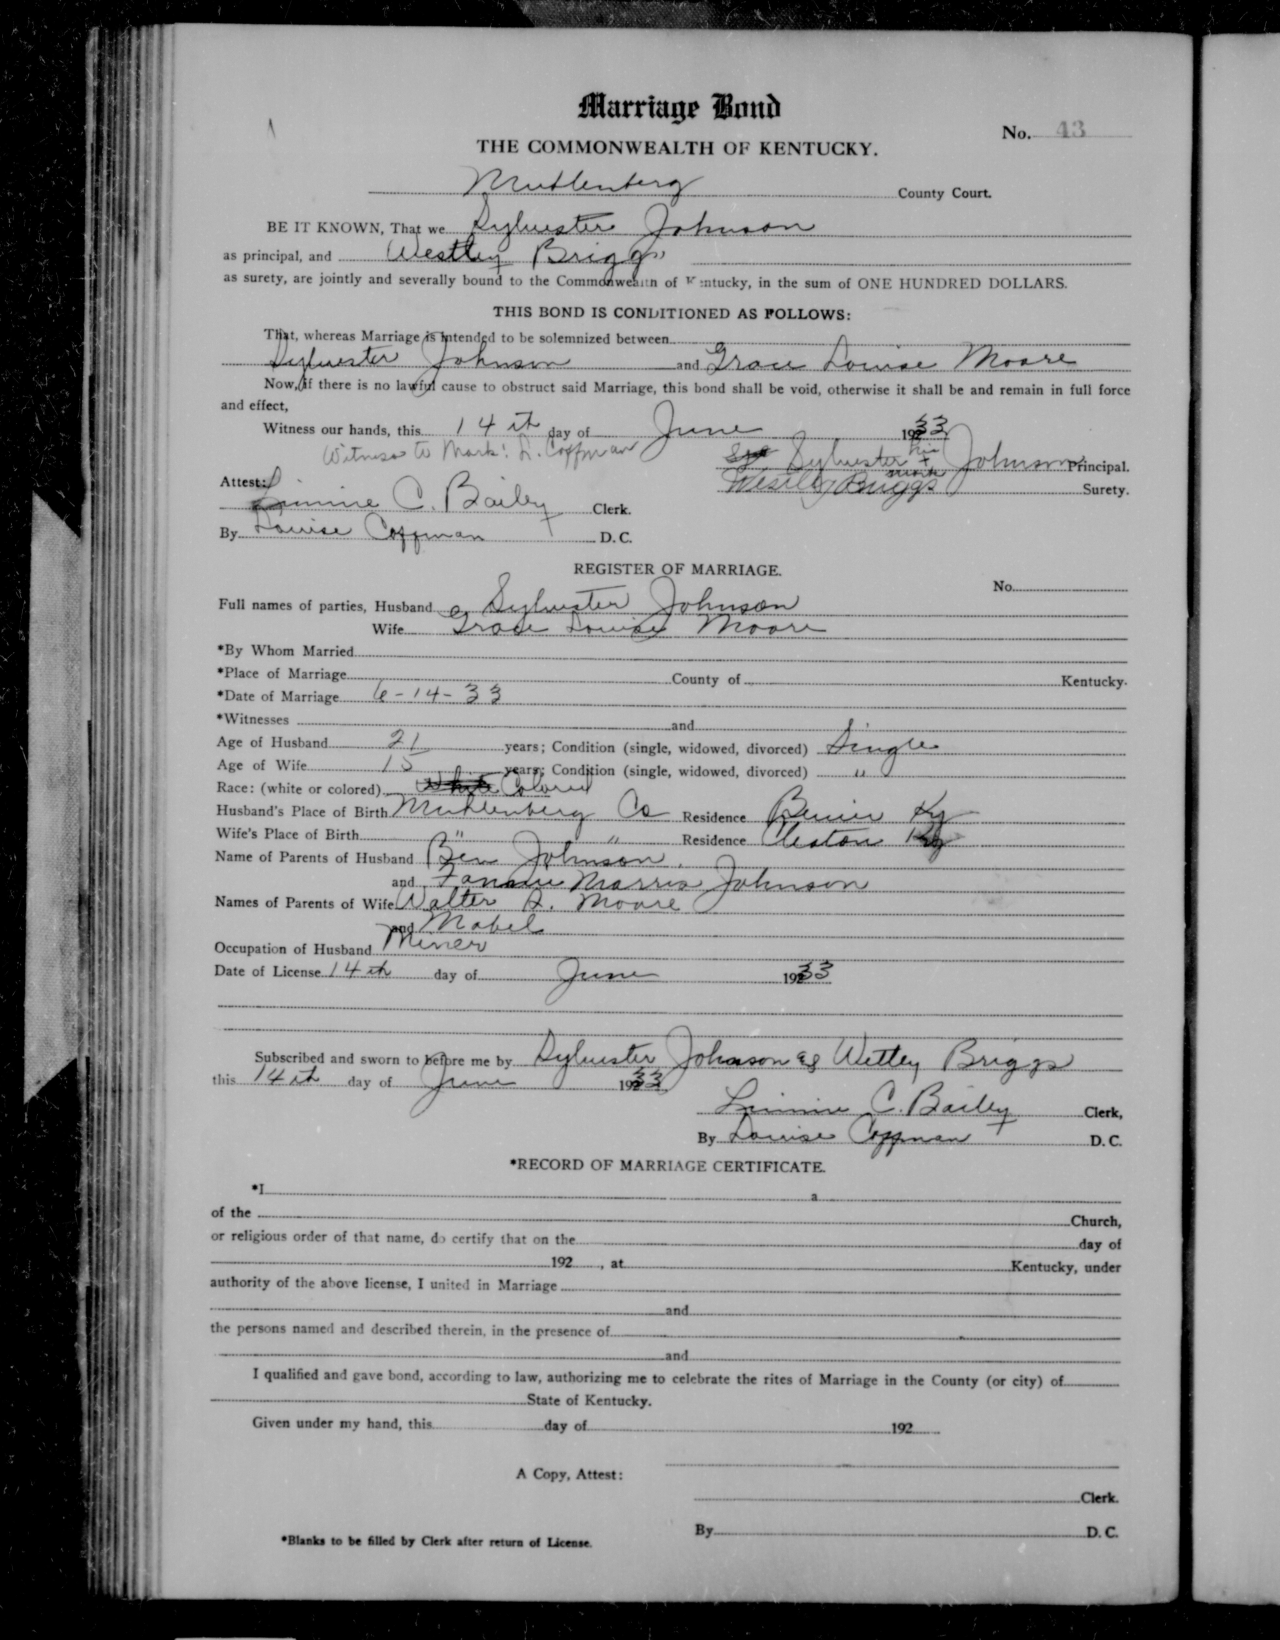 Marriage Bond
No. 43
THE COMMONWEALTH OF KENTUCKY.
Muhlenberg County Court.
BE IT KNOWN, That we Sylvester Johnson
as principal, and Westley Briggs
as surety, are jointly and severally bound to the Commonwealth of Kentucky, in the sum of ONE HUNDRED DOLLARS.
THIS BOND IS CONDITIONED AS FOLLOWS:
That, whereas Marriage is intended to be solemnized between
Sylvester Johnson and Grace Louise Moore
Now, if there is no lawful cause to obstruct said Marriage, this bond shall be void, otherwise it shall be and remain in full force
and effect,
Witness our hands, this 14th day of June 1933
Witness to Mark: L. Coffman
Sylvester his x mark Johnson Principal.
Attest: Westley Briggs Surety.
Linnie C. Bailey Clerk.
By Louise Coffman D. C.
REGISTER OF MARRIAGE.
No.
Full names of parties, Husband Sylvester Johnson
Wife Grace Louise Moore
*By Whom Married
*Place of Marriage County of Kentucky.
*Date of Marriage 6-14-33
*Witnesses and
Age of Husband 21 years; Condition (single, widowed, divorced) Single
Age of Wife 15 years; Condition (single, widowed, divorced) "
Race: (white or colored) White Colored
Husband's Place of Birth Muhlenberg Co Residence Ky
Wife's Place of Birth " " Residence Cleaton Ky
Name of Parents of Husband Ben Johnson
and Fannie Morris Johnson
Names of Parents of Wife Walter L. Moore
and Mabel
Occupation of Husband Miner
Date of License 14th day of June 1933
Subscribed and sworn to before me by Sylvester Johnson & Wetley Briggs
this 14th day of June 1933
Linnie C. Bailey Clerk,
By Louise Coffman D. C.
*RECORD OF MARRIAGE CERTIFICATE.
*I a
of the Church,
or religious order of that name, do certify that on the day of
192 , at Kentucky, under
authority of the above license, I united in Marriage
and
the persons named and described therein, in the presence of
and
I qualified and gave bond, according to law, authorizing me to celebrate the rites of Marriage in the County (or city) of
State of Kentucky.
Given under my hand, this day of 192
A Copy, Attest:
Clerk.
By D. C.
*Blanks to be filled by Clerk after return of License.